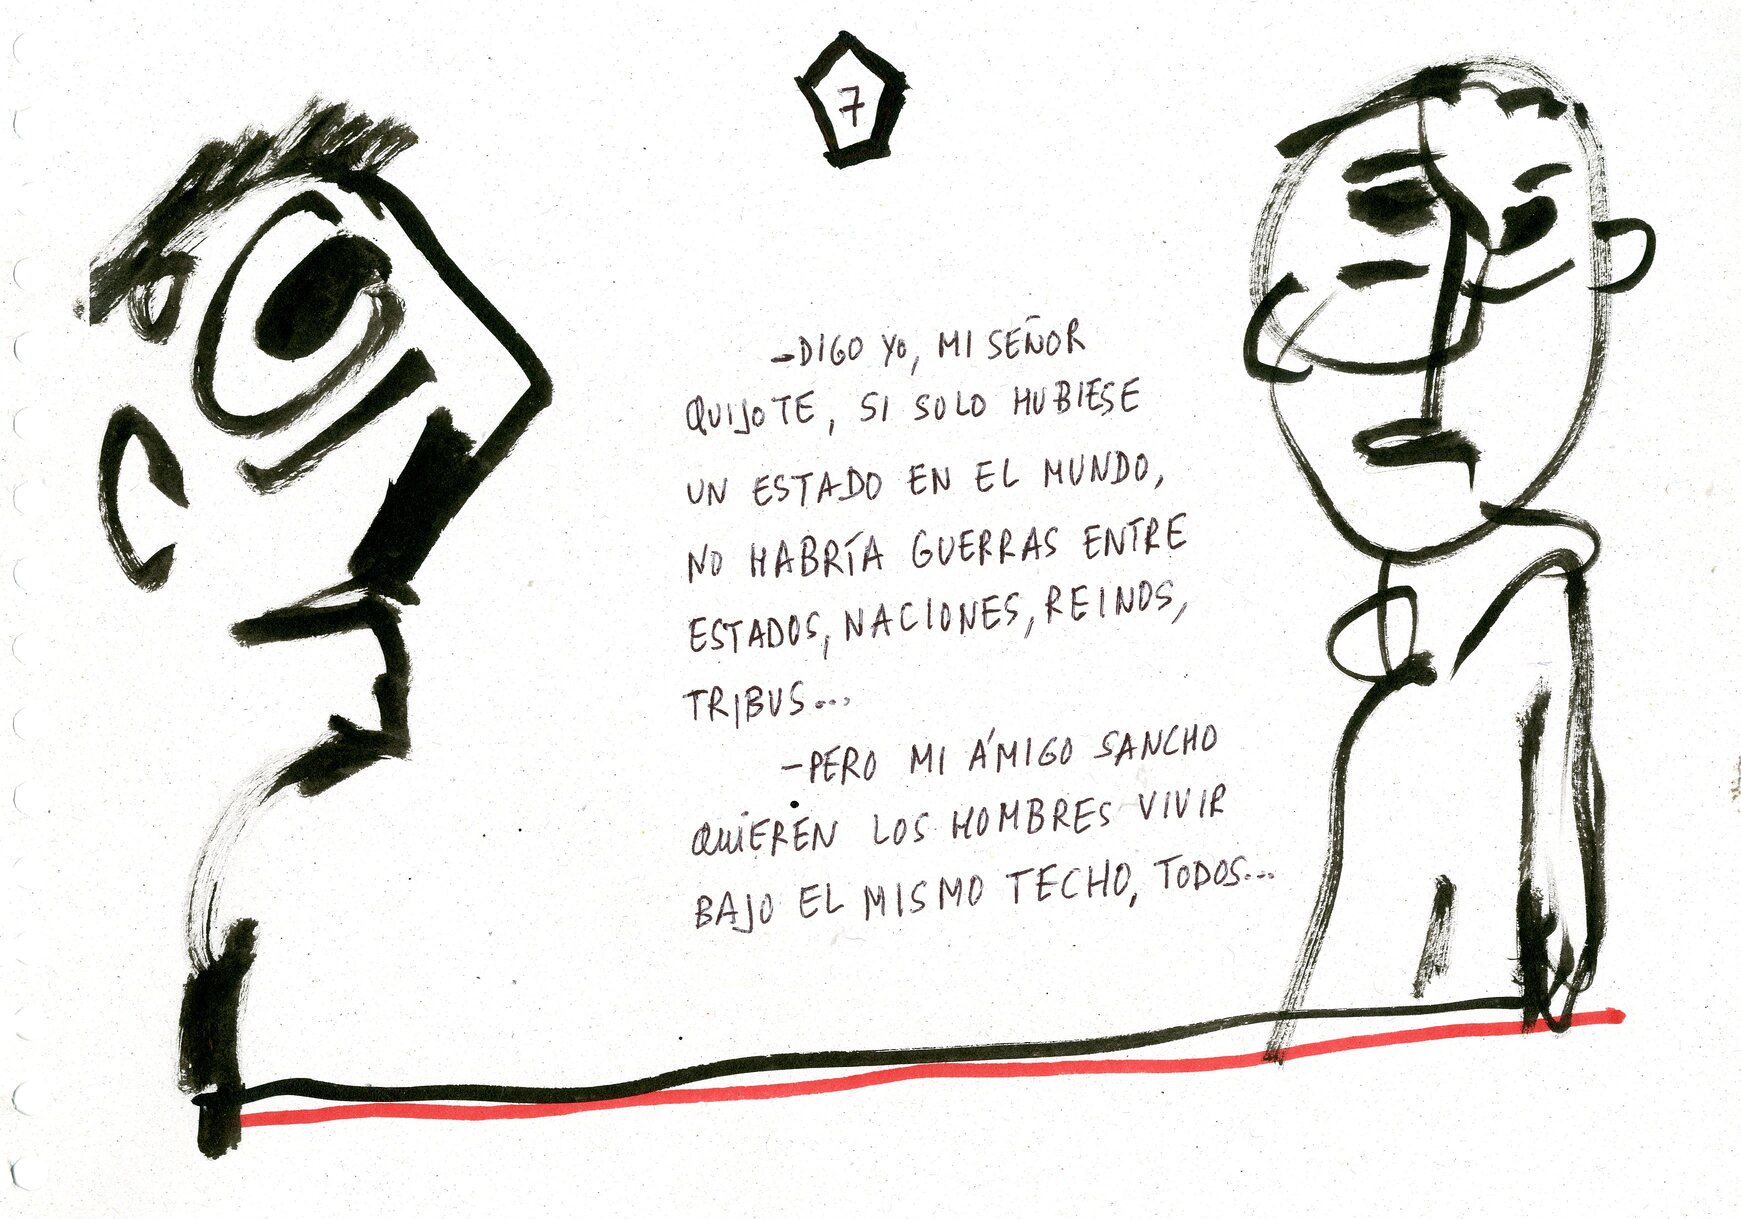 7
-DIGO YO, MI SEÑOR
QUIJOTE, SI SOLO HUBIESE
UN ESTADO EN EL MUNDO,
NO HABRÍA GUERRAS ENTRE
ESTADOS, NACIONES, REINOS,
TRIBUS...
-PERO MI AMIGO SANCHO
QUIEREN LOS HOMBRES VIVIR
BAJO EL MISMO TECHO, TODOS...